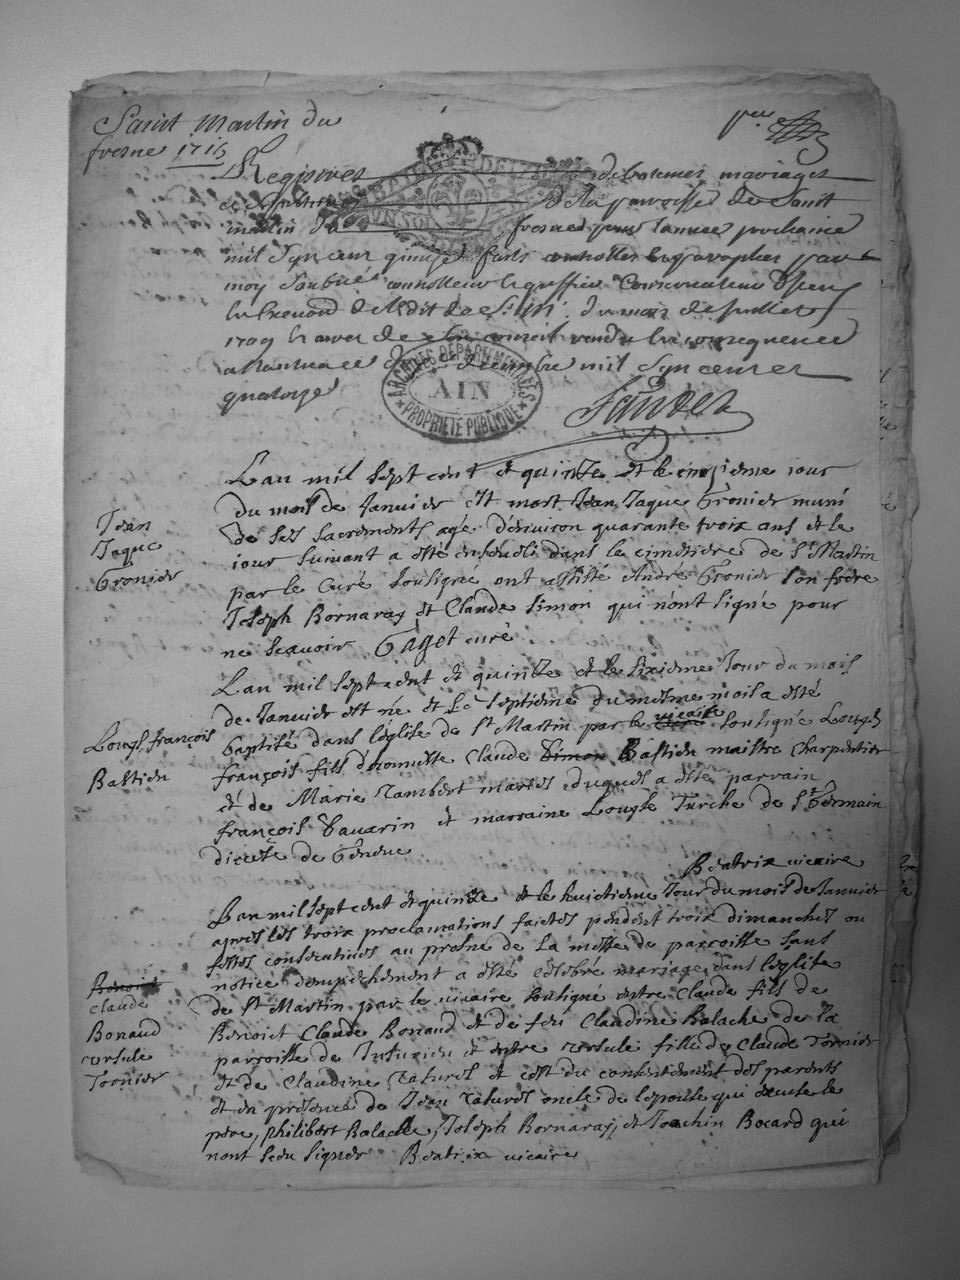 Saint Martin du
fresne 1715
Registres de batesmes mariages
de la parroisse de Saint
martin du fresne pour lannee prochaine
mil sept cent quinze
moy conservateur
de ledit de juillet
1709
decembre mil sept cent
quatorze
ARCHIVES DEPARTEMENTALES
AIN
PROPRIETE PUBLIQUE
L'an mil sept cent et quinze et le cinqieme iour
du mois de Janvier est mort Jean Jaque Gronier muni
de ses sacrements agé d'environ quarante troix ans et le
iour suivant a esté enseueli dans le cimetiere de St Martin
par le Curé soussigné ont assisté André Gronier son frere
Joseph Bornaray et Claude simon qui n'ont signé pour
ne scavoir Gaget curé
Jean
Jaque
Gronier
L'an mil sept cent et quinze et le sixieme Jour du mois
de Janvier est né et le septieme du mesme mois a esté
baptisé dans l'église de St Martin par le vicaire soussigné Louys
françois fils d'honneste Claude Simon Bastien maistre charpentier
et de Marie Jambert mariés duquel a esté parrain
françois Tavarin et marraine Louyse Turche de St Germain
diocese de Geneve
Beatrix vicaire
Louys françois
Bastien
L'an mil sept cent et quinze et le huictieme Jour du mois de Janvier
apres les troix proclamations faictes pendent troix dimanches ou
festes consecutives au prosne de la messe de parroisse sans
notice d'empeschement a esté celebré mariage dans l'eglise
de St Martin par le vicaire soussigné entre Claude fils de
Benoict Claude Bonaud et de feü Claudine Balache de la
parroisse de Jusurieu et entre ursule fille de Claude Tornier
et de Claudine et cest du consentement des parents
et en presence de Jean oncle de lepouse qui
pere, philibert Balache, Joseph Bornaray, et Joachin Bocard qui
nont sceu signer Beatrix vicaire
Benoict
Claude
Bonaud
ursule
Tornier